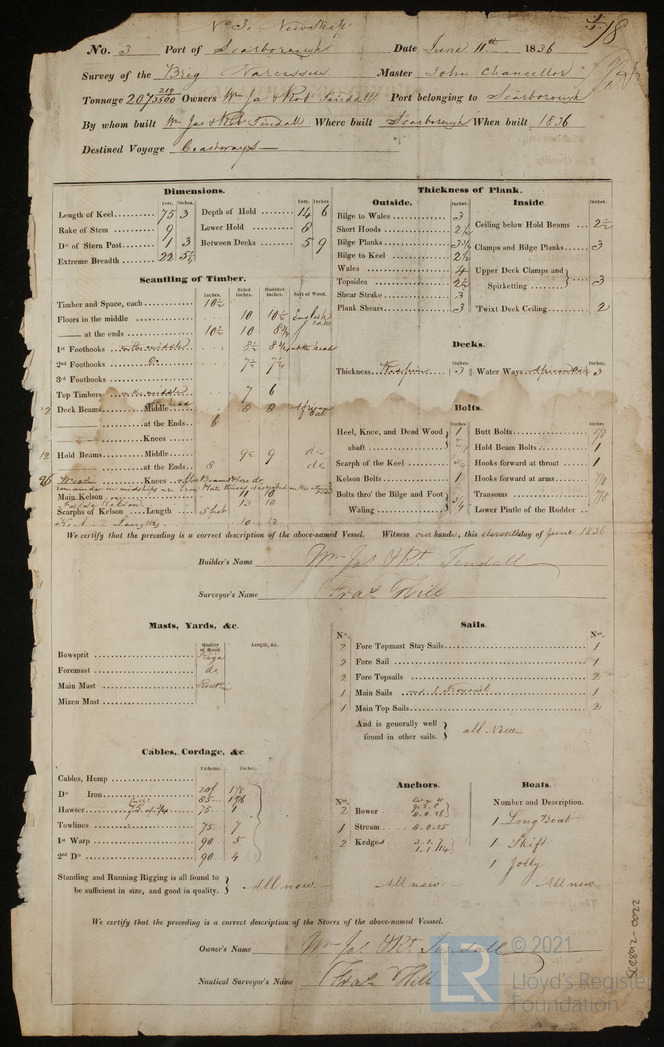 No. 3 New Ship
18
No. 3 Port of Scarborough Date June 11th 1836
Survey of the Brig Narcissus Master John Chancellor
Tonnage 207 219/3500 Owners Wm Jas & Robt Tindall Port belonging to Scarborough
By whom built Wm Jas & Robt Tindall Where built Scarborough When built 1836
Destined Voyage Coastways
Dimensions.
Feet. Inches.
Length of Keel 75 3
Rake of Stem 9
Do of Stern Post 1 3
Extreme Breadth 22 5½
Feet. Inches.
Depth of Hold 14 6
Lower Hold 8
Between Decks 5 9
Thickness of Plank.
Outside.
Inches.
Bilge to Wales 3
Short Hoods 2½
Bilge Planks
Bilge to Keel 2½
Wales 4
Topsides 2½
Shear Strake 3
Plank Shears 3
Inside.
Inches.
Ceiling below Hold Beams 2½
Clamps and Bilge Planks 3
Upper Deck Clamps and Spirketting 3
'Twixt Deck Ceiling 2
Scantling of Timber.
Inches. Sided Inches. Moulded Inches. Sort of Wood.
Timber and Space, each 10½
Floors in the middle 10 10½ English oak
at the ends 10½ 10 8¾
1st Foothooks in the middle 8½ at the head
2nd Foothooks Do 7½ 7½
3rd Foothooks
Top Timbers 7 6
12 Deck Beams Middle 8 8 African Oak
at the Ends 6
Knees
12 Hold Beams Middle 9½ 9 do
at the Ends 8 do
26 Wood Knees
Main Kelson 11 10
Scarphs of Kelson Length 5 feet
Decks.
Inches. Inches.
Thickness 3 Water Ways African Oak 3
Bolts.
Inches.
Heel, Knee, and Dead Wood abaft 1
Scarph of the Keel ¾
Kelson Bolts 1
Bolts thro' the Bilge and Foot Waling ¾
Inches.
Butt Bolts 5/8
Hold Beam Bolts 1
Hooks forward at throat 1
Hooks forward at arms 7/8
Transoms 7/8
Lower Pintle of the Rudder
We certify that the preceding is a correct description of the above-named Vessel. Witness our hands, this eleventh day of June 1836
Builder's Name Wm Jas & Rt. Tindall
Surveyor's Name Fras Hill
Masts, Yards, &c.
Quality of Wood. Length, &c.
Bowsprit Riga
Foremast do
Main Mast
Mizen Mast
Sails.
No. No.
2 Fore Topmast Stay Sails 1
2 Fore Sail 1
2 Fore Topsails 2
1 Main Sails and 1 Trysail 1
1 Main Top Sails 2
And is generally well found in other sails. all New
Cables, Cordage, &c.
Fathoms. Inches.
Cables, Hemp
Do Iron
Hawser 75 1
Towlines 75 7
1st Warp 90 5
2nd Do 90 4
Standing and Running Rigging is all found to be sufficient in size, and good in quality. All new.
Anchors.
No.
2 Bower
1 Stream
2 Kedges
All new.
Boats.
Number and Description.
1 Long Boat
1 Skiff
1 Jolly
All new.
We certify that the preceding is a correct description of the Stores of the above-named Vesssel.
Owner's Name Wm Jas & Rt. Tindall
Nautical Surveyor's Name Fras Hill
SCC892-0022
LR © 2021
Lloyd's Register
Foundation